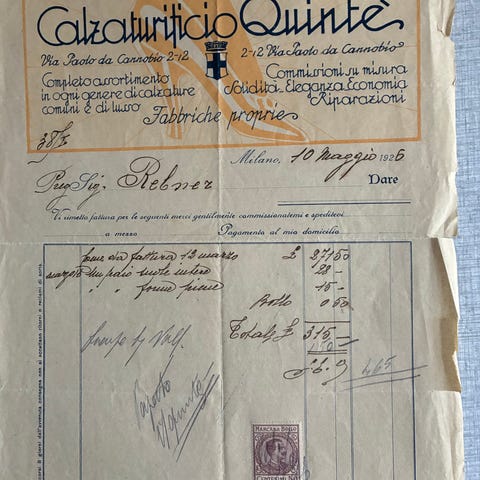 Calzaturificio Quintè
Via Paolo da Cannobio 2-12
2-12 Via Paolo da Cannobio
Completo assortimento
in ogni genere di calzature
comuni e di lusso
Commissioni su misura
Solidità Eleganza Economia
Riparazioni
Fabbriche proprie
Milano, 10 Maggio 1926
Preg Sig. Rebner
Dare
Vi rimetto fattura per le seguenti merci gentilmente commissionatemi e speditevi
a mezzo
Pagamento al mio domicilio
come da fattura 12 marzo £ 271 50
un paio suole intere 28 -
" " 15 -
Bollo 0 50
Totale £ 315 -
465
Quintè
MARCA DA BOLLO
CENTESIMI 50